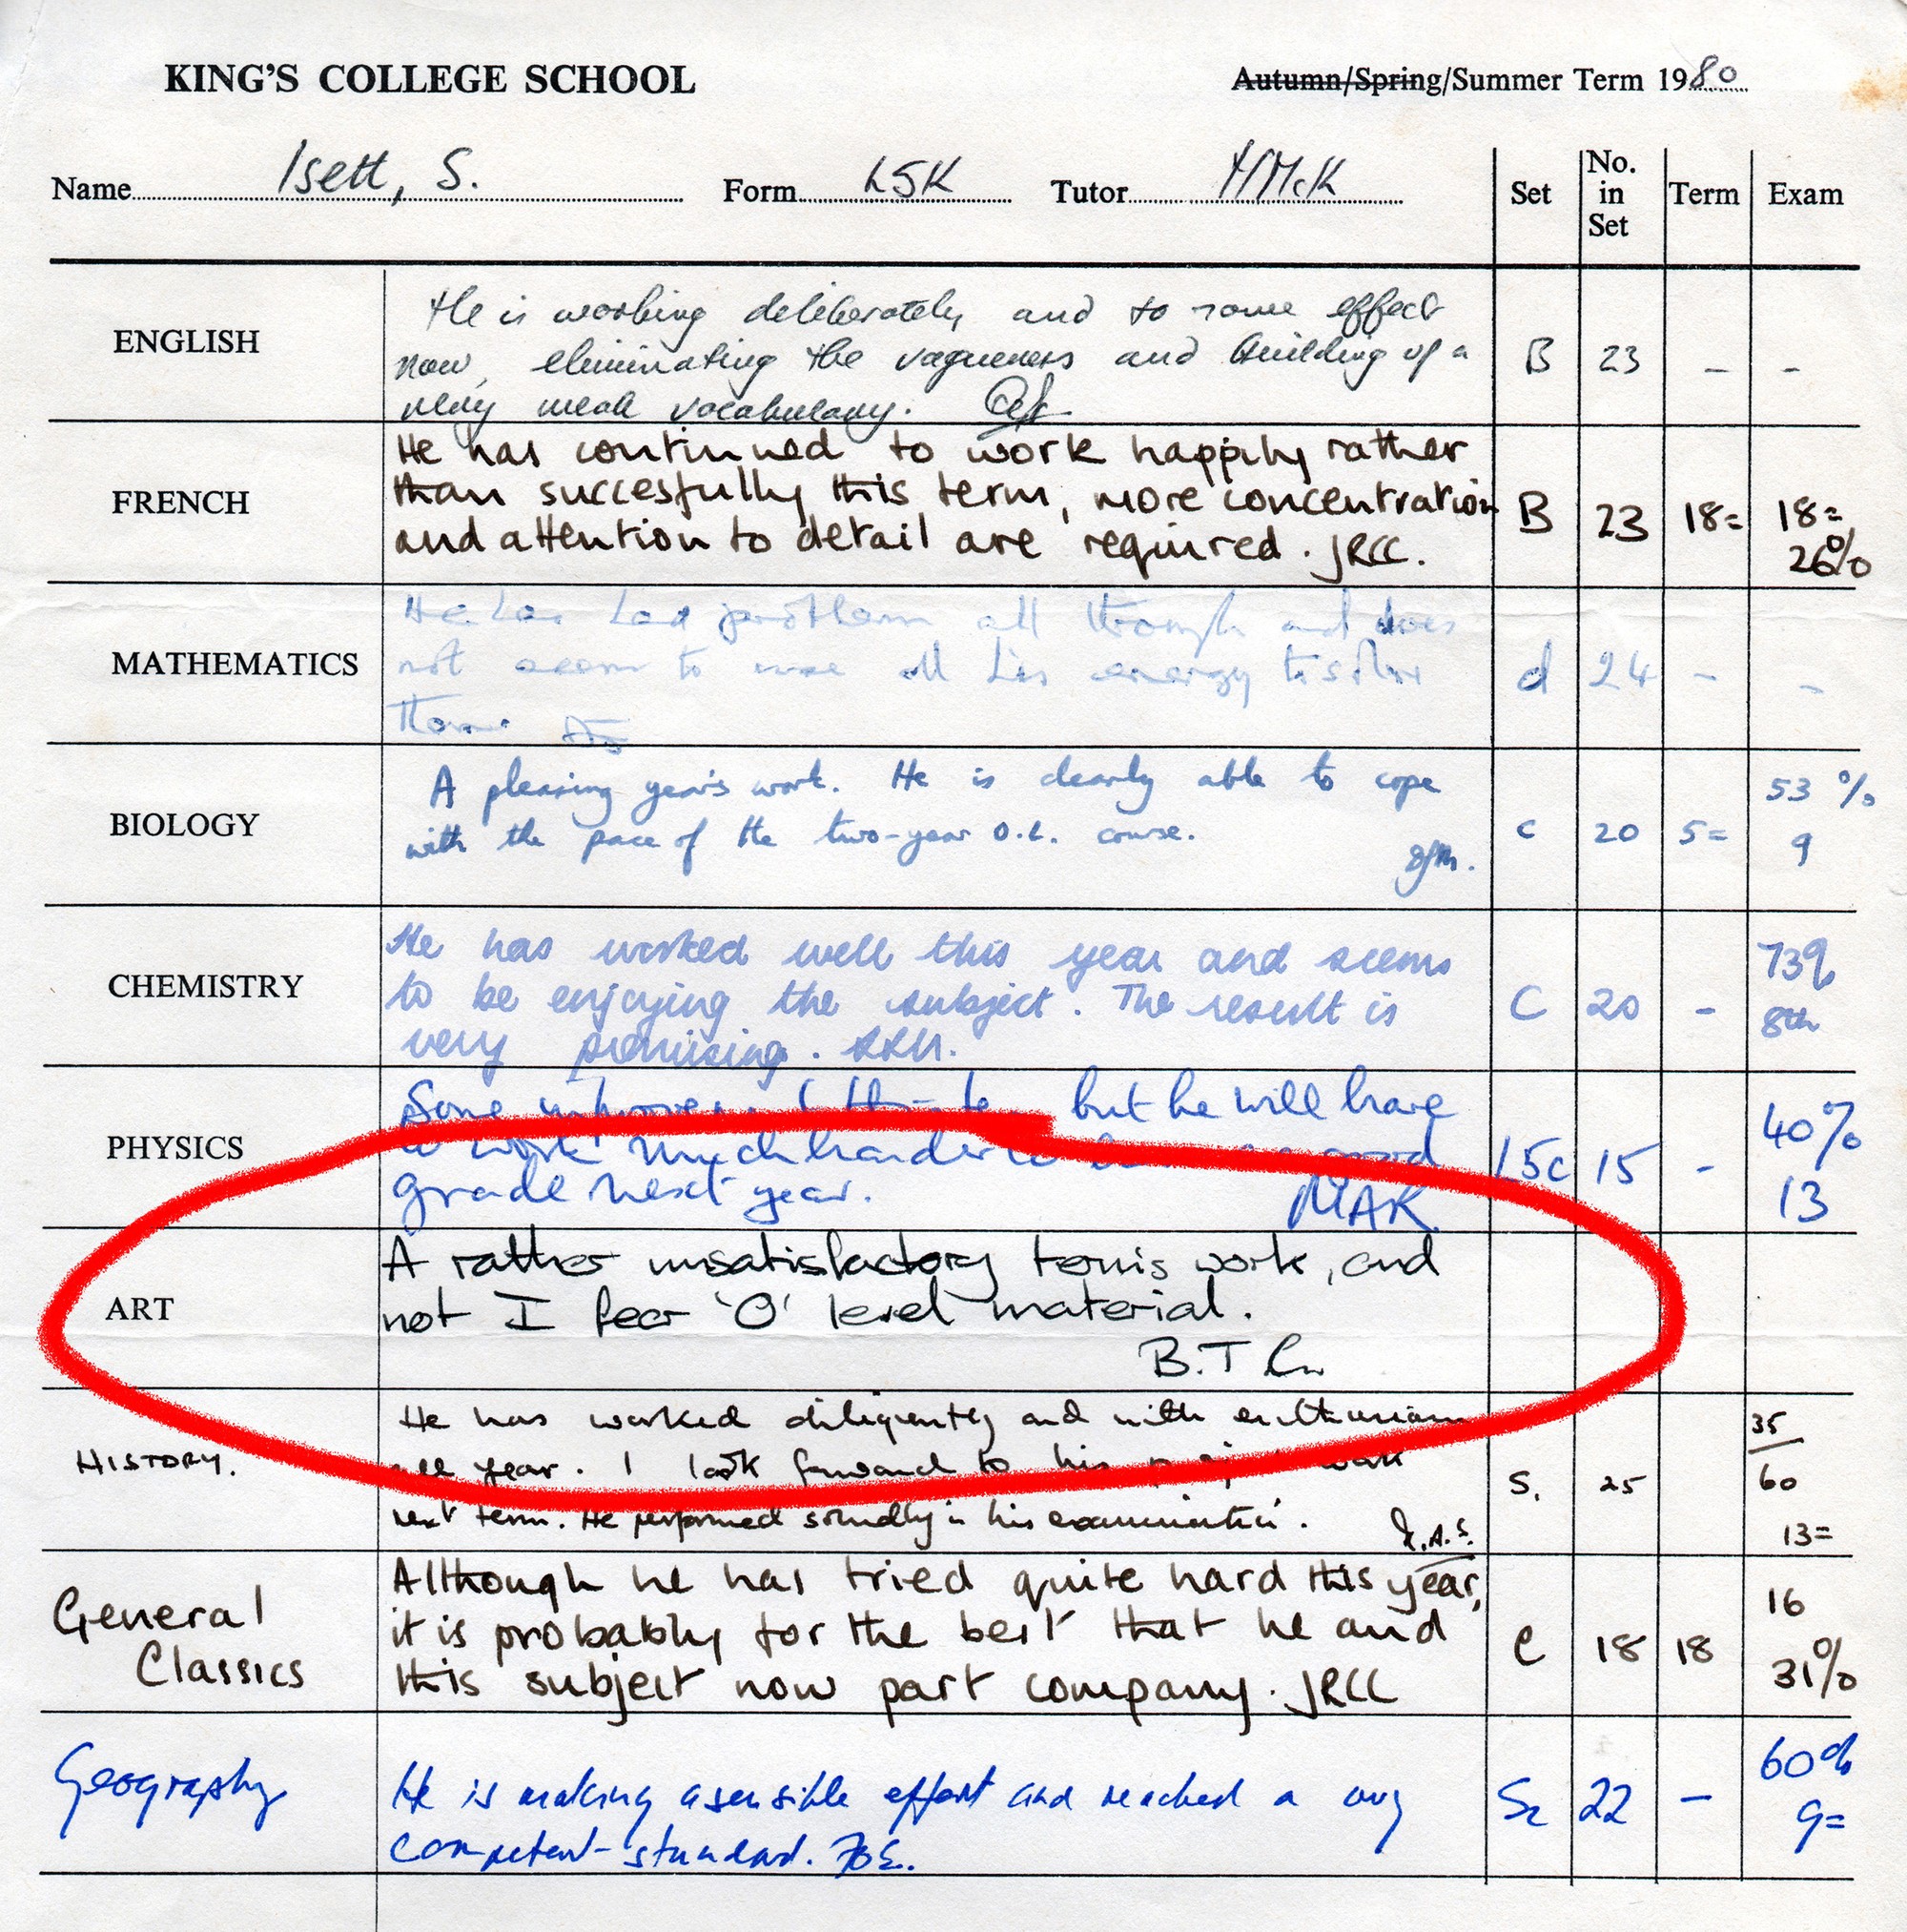 KING'S COLLEGE SCHOOL
Autumn/Spring/Summer Term 1980
Name Isett, S. Form L5K Tutor HMcK
Set No. in Set Term Exam
ENGLISH
He is working deliberately and to some effect
now, eliminating the vagueness and building up a
very weak vocabulary.
B 23 - -
FRENCH
He has continued to work happily rather
than succesfully this term, more concentration
and attention to detail are required. JRCC.
B 23 18= 18= 26%
MATHEMATICS
He has had problems all through and does
not seem to use all his energy to solve
them.
d 24 - -
BIOLOGY
A pleasing year's work. He is clearly able to cope
with the pace of the two-year O.L. course.
C 20 5= 53% 9
CHEMISTRY
He has worked well this year and seems
to be enjoying the subject. The result is
very promising.
C 20 - 73% 8th
PHYSICS
Some but he will have
to work much harder good
grade next year. MAK
L5c 15 - 40% 13
ART
A rather unsatisfactory term's work, and
not I fear 'O' level material.
B.T
HISTORY.
He has worked diligently and with enthusiasm
all year. I look forward to his work
next term. He performed soundly in his examination.
S. 25 35/60 13=
General Classics
Although he has tried quite hard this year,
it is probably for the best that he and
this subject now part company. JRCC
C 18 18 16 31%
Geography
He is making a sensible effort and reached a very
competent standard.
S2 22 - 60% 9=